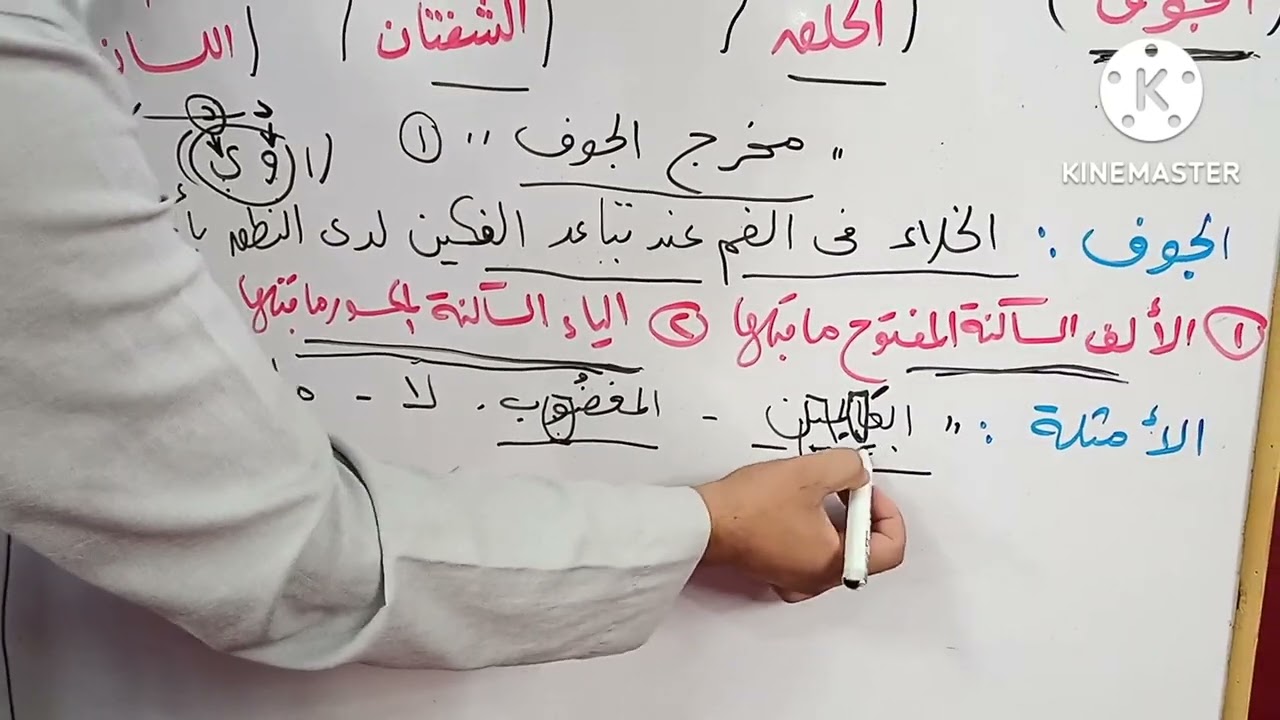 الجوف / الحلق / الشفتان / اللسان
" مخرج الجوف " ①
( ا و ي )
الجوف : الخلاء فى الفم عند تباعد الفكين لدى النطق
① الألف الساكنة المفتوح ما قبلها ② الياء الساكنة المكسور ما قبلها
الأمثلة : " العالمين - المغضوب . لا -
K
KINEMASTER